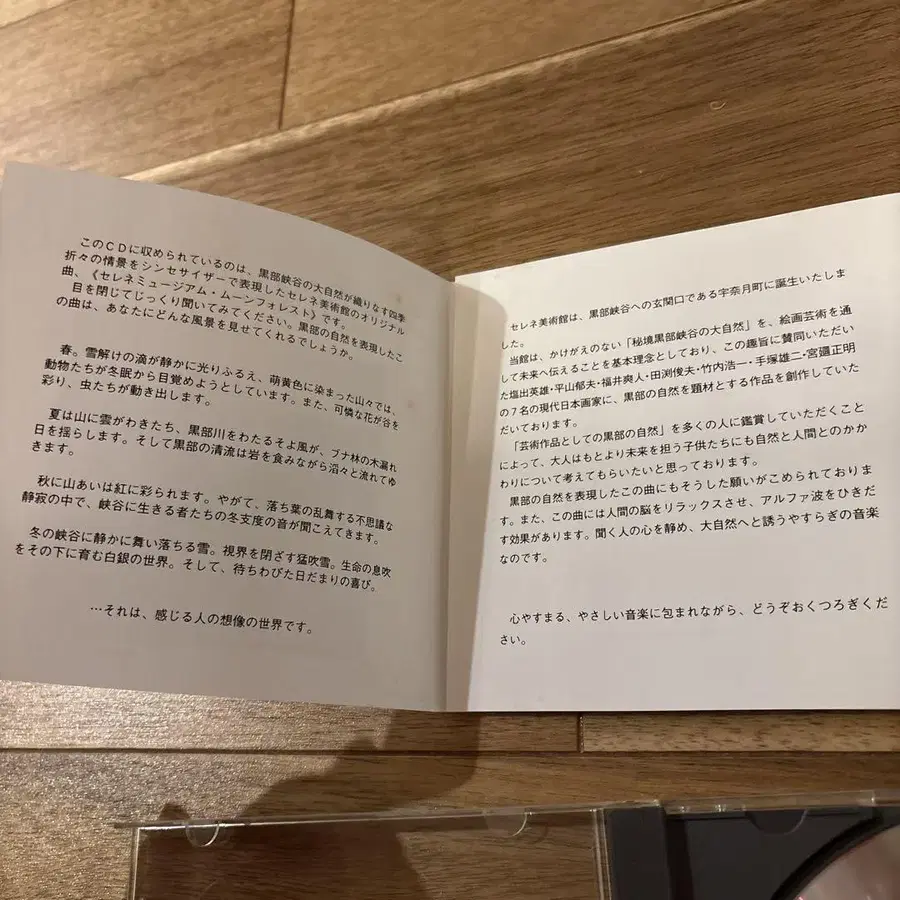 このＣＤに収められているのは、黒部峡谷の大自然が織りなす四季
折々の情景をシンセサイザーで表現したセレネ美術館のオリジナル
曲、《セレネミュージアム・ムーンフォレスト》です。
目を閉じてじっくり聞いてみてください。黒部の自然を表現したこ
の曲は、あなたにどんな風景を見せてくれるでしょうか。
春。雪解けの滴が静かに光りふるえ、萌黄色に染まった山々では、
動物たちが冬眠から目覚めようとしています。また、可憐な花が谷を
彩り、虫たちが動き出します。
夏は山に雲がわきたち、黒部川をわたるそよ風が、ブナ林の木漏れ
日を揺らします。そして黒部の清流は岩を食みながら滔々と流れてゆ
きます。
秋に山あいは紅に彩られます。やがて、落ち葉の乱舞する不思議な
静寂の中で、峡谷に生きる者たちの冬支度の音が聞こえてきます。
冬の峡谷に静かに舞い落ちる雪。視界を閉ざす猛吹雪。生命の息吹
をその下に育む白銀の世界。そして、待ちわびた日だまりの喜び。
…それは、感じる人の想像の世界です。
セレネ美術館は、黒部峡谷への玄関口である宇奈月町に誕生いたしま
した。
当館は、かけがえのない「秘境黒部峡谷の大自然」を、絵画芸術を通
して未来へ伝えることを基本理念としており、この趣旨に賛同いただい
た塩出英雄・平山郁夫・福井爽人・田渕俊夫・竹内浩一・手塚雄二・宮廻正明
の７名の現代日本画家に、黒部の自然を題材とする作品を創作していた
だいております。
「芸術作品としての黒部の自然」を多くの人に鑑賞していただくこと
によって、大人はもとより未来を担う子供たちにも自然と人間とのかか
わりについて考えてもらいたいと思っております。
黒部の自然を表現したこの曲にもそうした願いがこめられておりま
す。また、この曲には人間の脳をリラックスさせ、アルファ波をひきだ
す効果があります。聞く人の心を静め、大自然へと誘うやすらぎの音楽
なのです。
心やすまる、やさしい音楽に包まれながら、どうぞおくつろぎくだ
さい。